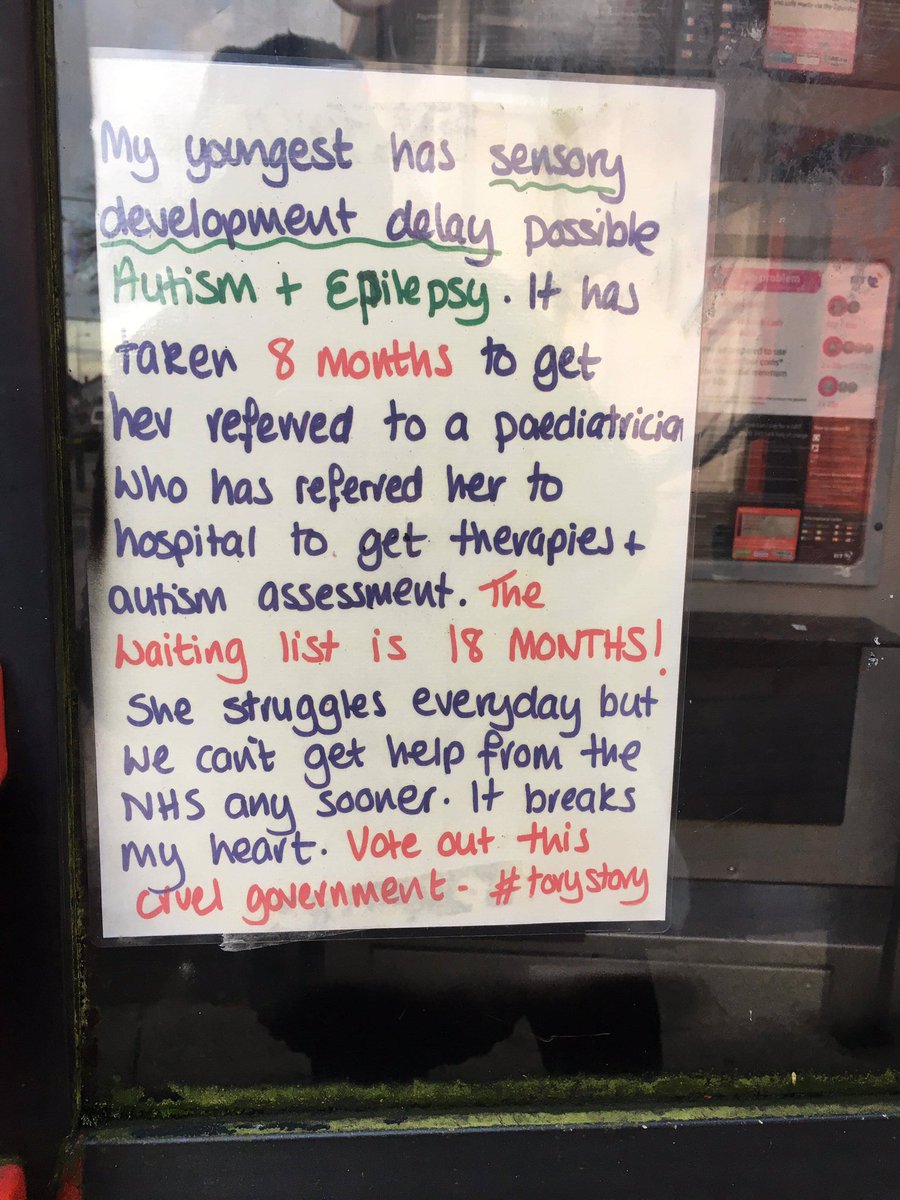 My youngest has sensory
development delay possible
Autism + Epilepsy. It has
taken 8 months to get
her referred to a paediatrician
who has referred her to
hospital to get therapies +
autism assessment. The
waiting list is 18 MONTHS!
She struggles everyday but
we can't get help from the
NHS any sooner. It breaks
my heart. Vote out this
cruel government - #torystory
problem
BT